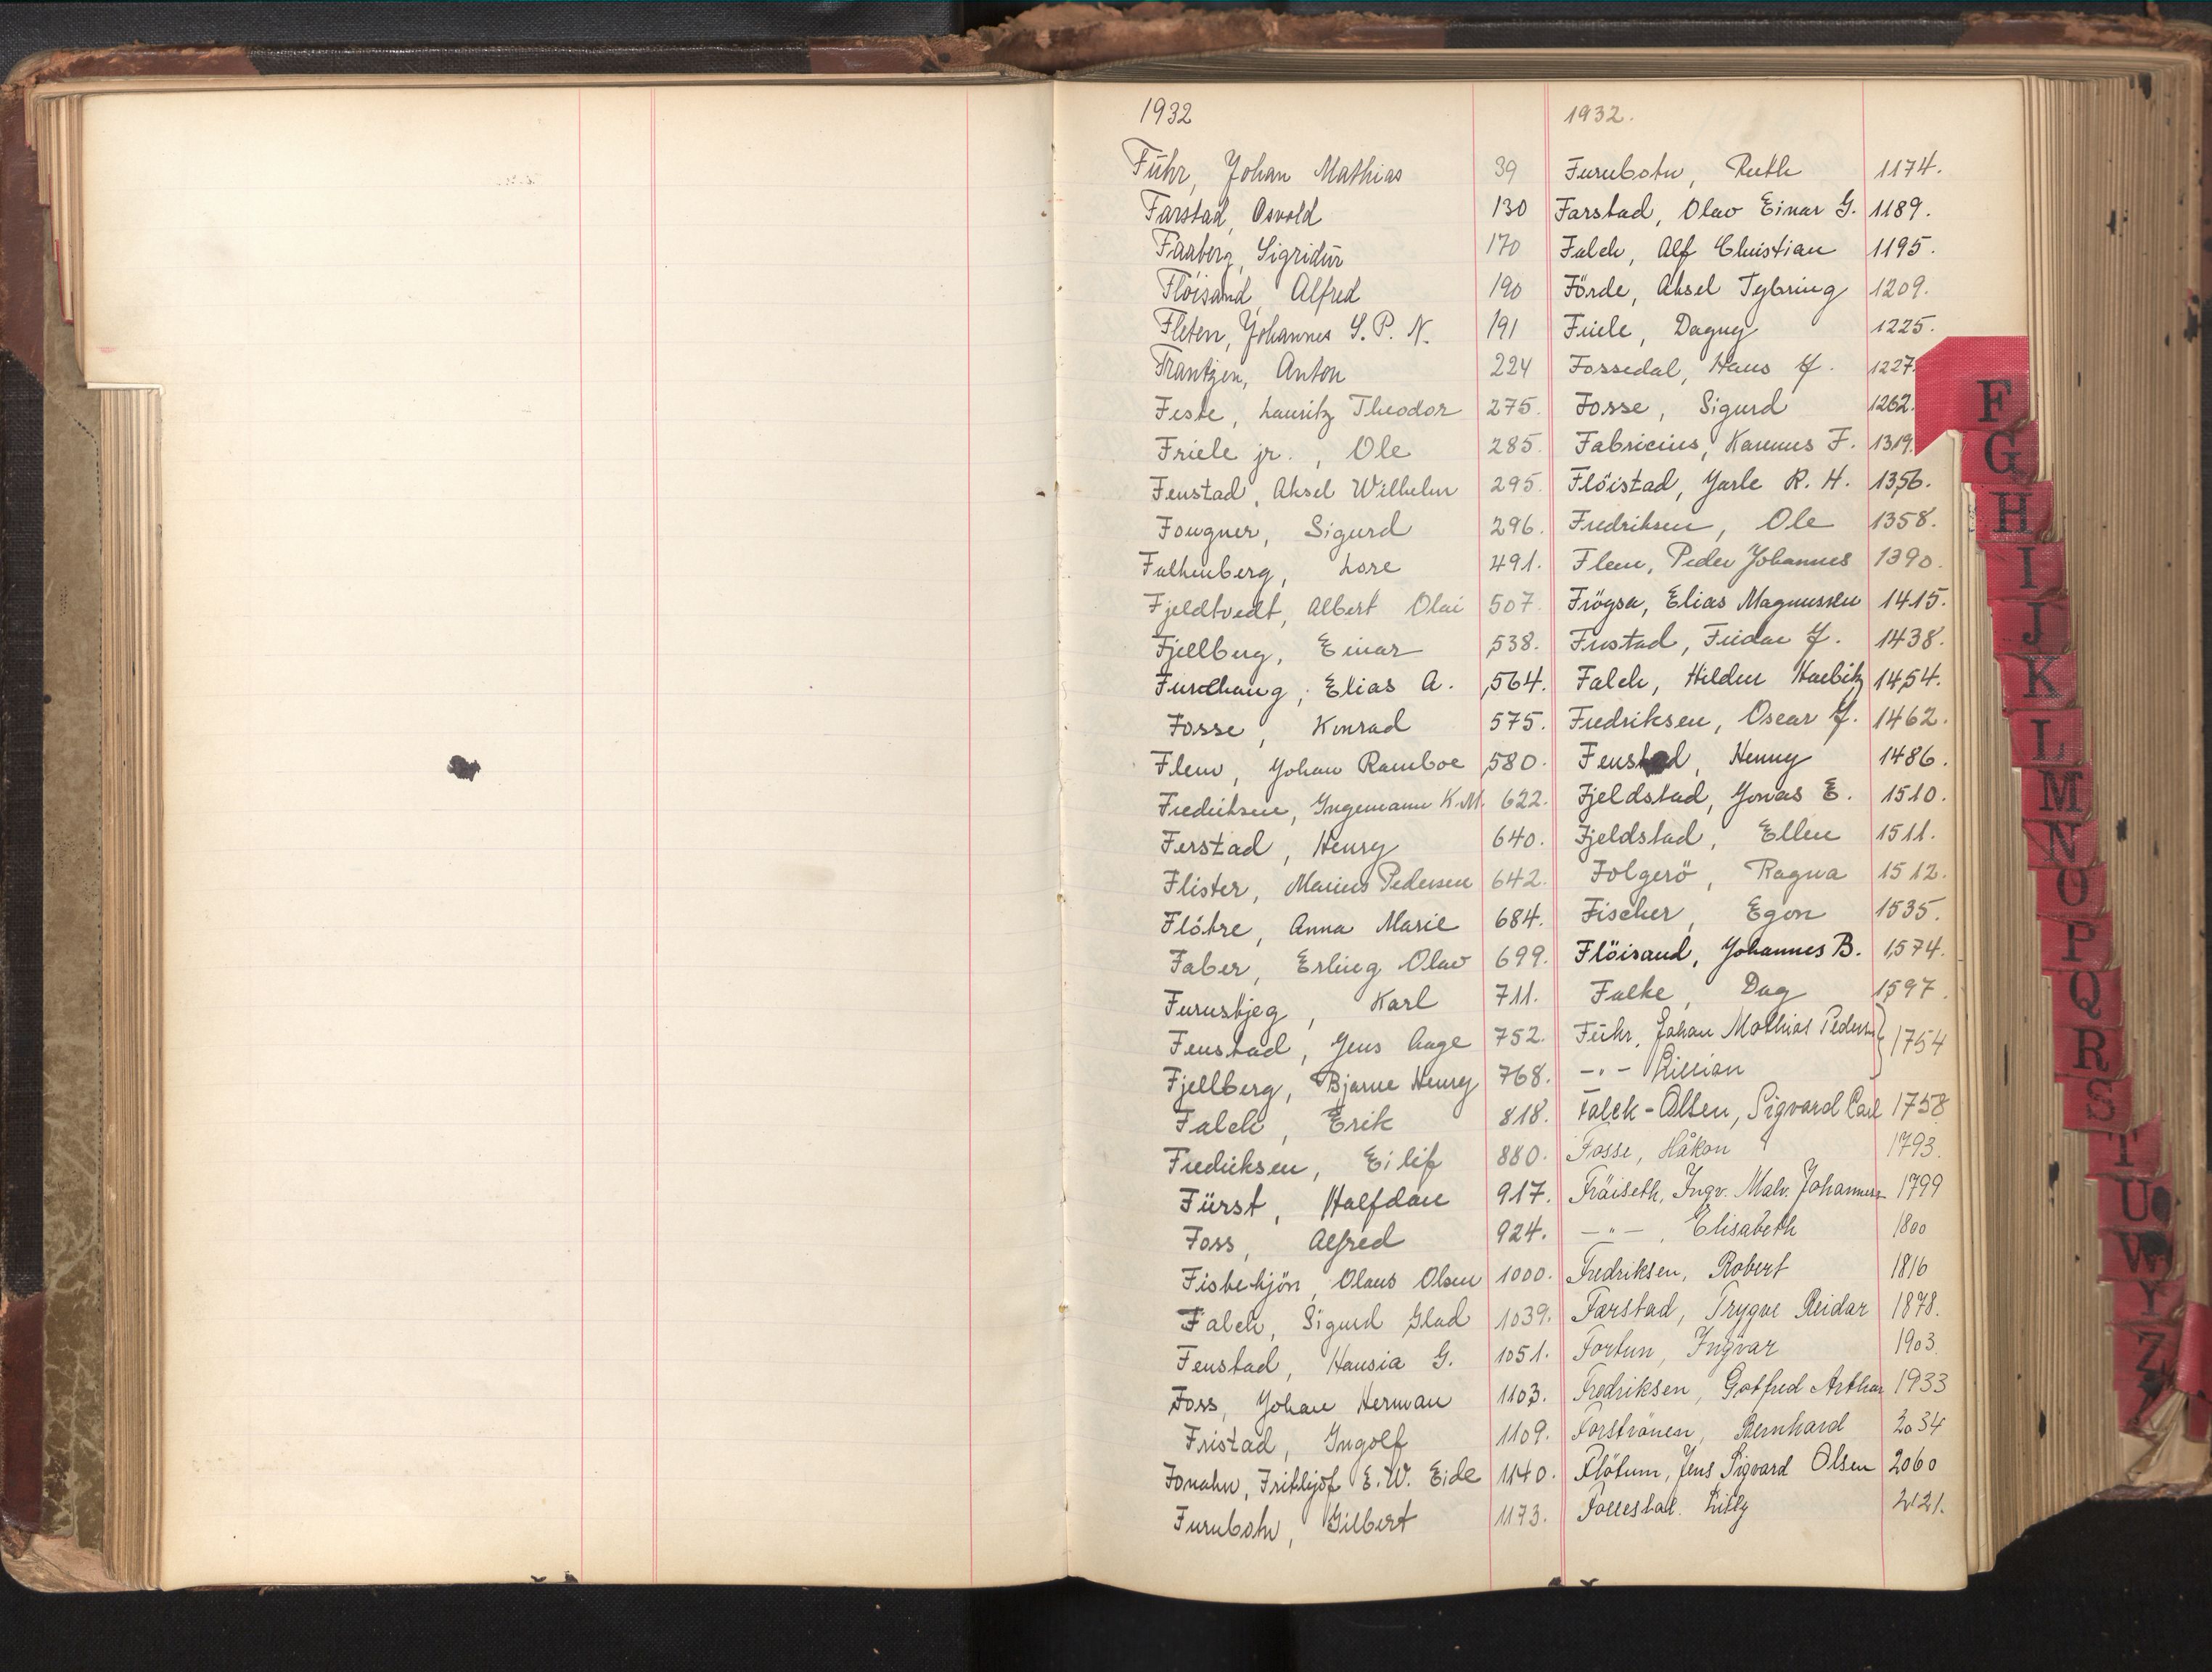 1932
Führ, Johan Mathias 39
Farstad, Osvold 130
Faaberg, Sigridur 170
Flöisand, Alfred 190
Fleten, Johannes S. P. N. 191
Frantzen, Anton 224
Feste, Lauritz Theodor 275.
Friele jr., Ole 285.
Fenstad, Aksel Wilhelm 295.
Fougner, Sigurd 296.
Falkenberg, Lore 491.
Fjeldtvedt, Albert Olai 507.
Fjellberg, Einar 538.
Furehaug, Elias A. 564.
Fosse, Konrad 575.
Flem, Johan Ramboe 580.
Fredriksen, Ingemann K.M. 622.
Ferstad, Henry 640.
Flister, Marius Pedersen 642.
Flötre, Anna Marie 684.
Faber, Erling Olav 699.
Furuskjeg, Karl 711.
Fenstad, Jens Aage 752.
Fjellberg, Bjarne Henry 768.
Falch, Erik 818.
Fredriksen, Eilif 880.
Fürst, Halfdan 917.
Foss, Alfred 924.
Fiskekjön, Olaus Olsen 1000.
Falch, Sigurd Glad 1039.
Fenstad, Hansia G. 1051.
Foss, Johan Herman 1103.
Fristad, Ingolf 1109.
Fonahn, Frithjof E.W. Eide 1140.
Furubotn, Gilbert 1173.
1932.
Furubotn, Ruth 1174.
Farstad, Olav Einar G. 1189.
Falch, Alf Christian 1195.
Förde, Aksel Tybring 1209.
Friele, Dagny 1225.
Fossedal, Hans J. 1227.
Fosse, Sigurd 1262.
Fabricius, Karenus F. 1319.
Flöistad, Jarle R. H. 1356.
Fredriksen, Ole 1358.
Flem, Peder Johannes 1390.
Frögsa, Elias Magnussen 1415.
Frostad, Fridar J. 1438.
Falch, Hildur Harbitz 1454.
Fredriksen, Oscar J. 1462.
Fenstad, Henny 1486.
Fjeldstad, Jonas E. 1510.
Fjeldstad, Ellen 1511.
Folgerö, Ragna 1512.
Fischer, Egon 1535.
Flöisand, Johannes B. 1574.
Falke, Dag 1597.
Führ, Johan Mathias Pedersen } 1754
-"- Lillian
Falck-Olsen, Sigvard Carl 1758
Fosse, Håkon 1793.
Fräiseth, Ingv. Malv. Johannesen 1799
-"-, Elisabeth 1800
Fredriksen, Robert 1816
Farstad, Trygve Reidar 1878.
Fortun, Ingvar 1903.
Fredriksen, Gotfred Arthur 1933
Forströnen, Bernhard 2034
Flötum, Jens Sigvard Olsen 2060
Lilly 2121.
F
G
H
I
J
K
L
M
N
O
P
Q
R
S
T
U
W
Y
Z